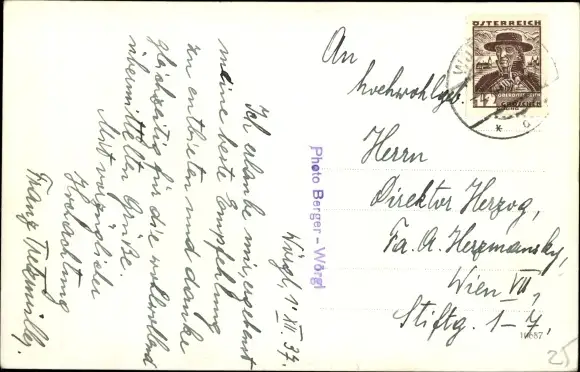 Wörgl, 1. III. 37.
Ich erlaube mir, ergebenst
meine beste Empfehlung
zu entbieten und danke
gleichzeitig für die wohlwollend
übermittelten Grüße.
Mit vorzüglicher
Hochachtung
Franz
Photo Berger – Wörgl
ÖSTERREICH
12
GROSCHEN
An
hochwohlgeb.
Herrn
Direktor Herzog,
Fa. A. Herzmansky,
Wien VII,
Stiftg. 1–7.
25